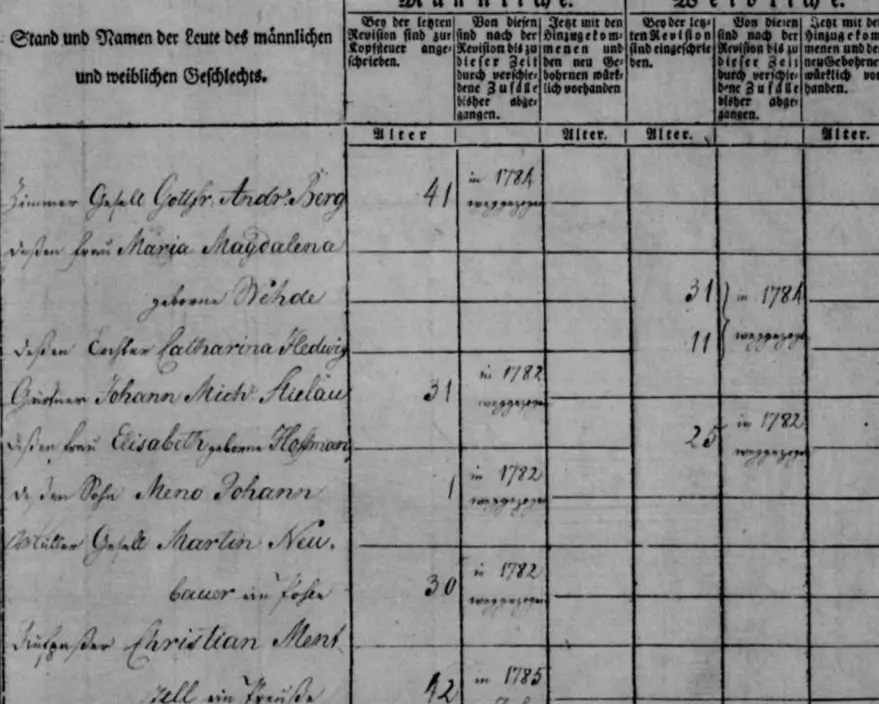 Männliche. Weibliche.
Stand und Namen der Leute des männlichen
und weiblichen Geschlechts.
Bey der letzten
Revision sind zur
Kopfsteuer ange-
schrieben.
Von diesen
sind nach der
Revision bis zu
dieser Zeit
durch verschie-
dene Zufälle
bisher abge-
gangen.
Jetzt mit den
Hinzugekom-
menen und
den neu Ge-
bohrnen würk-
lich vorhanden
Bey der letz-
ten Revision
sind eingeschrie-
ben.
Von diesen
sind nach der
Revision bis zu
dieser Zeit
durch verschie-
dene Zufälle
bisher abge-
gangen.
Jetzt mit de
Hinzugekom-
menen und de
neu Gebohrne
würklich vor
handen.
Alter Alter. Alter. Alter.
Zimmer Gesell Gottfr. Andrs. Berg 41 in 1784
weggezogen
deßen Frau Maria Magdalena
geborne Wehde 31 in 1784
deßen Tochter Catharina Hedwig 11 weggezogen
Gärtner Johann Mich. Stielau 31 in 1782
weggezogen
deßen Frau Elisabeth geborne Hoffmann 25 in 1782
weggezogen
deßen Sohn Meno Johann 1 in 1782
weggezogen
Müller Gesell Martin Neu-
bauer ein Pohle 30 in 1782
weggezogen
Christian Ment
zell ein Preuße 42 in 1785